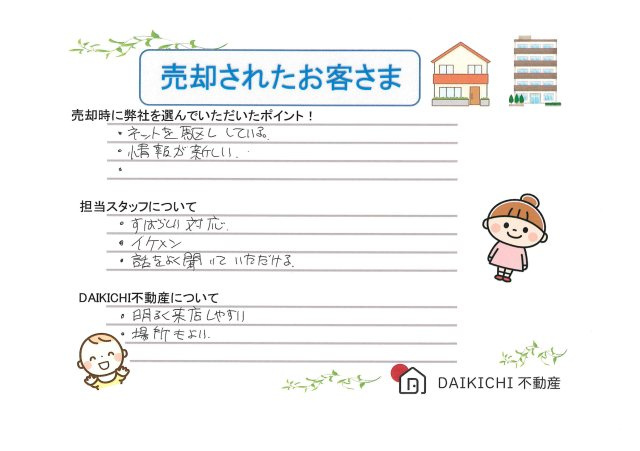 売却されたお客さま
売却時に弊社を選んでいただいたポイント！
・ネットを駆使している。
・情報が新しい。
・
担当スタッフについて
・すばらしい対応。
・イケメン
・話をよく聞いていただける。
DAIKICHI不動産について
・明るく来店しやすい
・場所もよい。
DAIKICHI 不動産